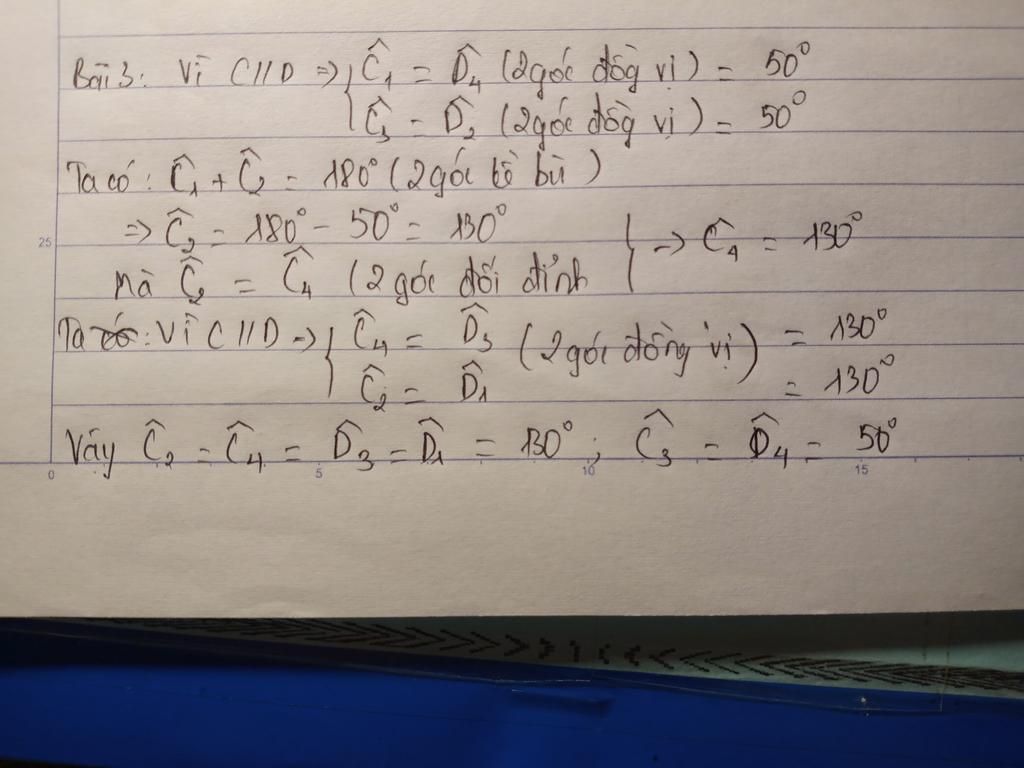 Bài 3: Vì C//D => { Ĉ₁ = D̂₄ (2 góc đồng vị) = 50°
Ĉ₃ = D̂₂ (2 góc đồng vị) = 50°
Ta có: Ĉ₁ + Ĉ₂ = 180° (2 góc bồ bù)
=> Ĉ₂ = 180° - 50° = 130°
mà Ĉ₂ = Ĉ₄ (2 góc đối đỉnh } => Ĉ₄ = 130°
25
Ta có: Vì C//D => { Ĉ₄ = D̂₃ (2 góc đồng vị) = 130°
Ĉ₂ = D̂₁ = 130°
Váy Ĉ₂ = Ĉ₄ = D̂₃ = D̂₁ = 130° ; Ĉ₃ = D̂₄ = 50°
0 5 10 15